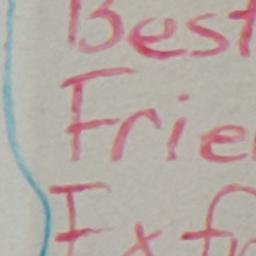 Best
Frie
Exfr